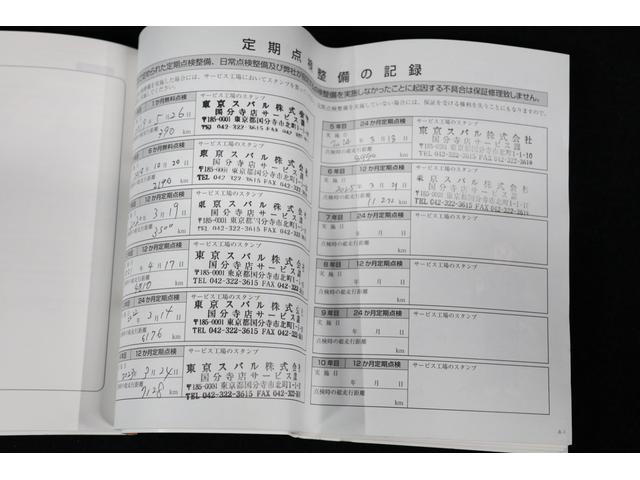 定期点検整備の記録
められた定期点検整備、日常点検整備及び弊社が
整備を実施しなかったことに起因する不具合は保証修理致しません。
実施した場合には、サービス工場においてスタンプを
定期点検整備を実施していない場合には、保証を受ける権利を失うことにもなりますので、
か月無料点検 サービス工場のスタンプ
5月26日
390 km
東京スバル株式会社
国分寺店サービス課
〒185-0001 東京都国分寺市北町1-1-1
TEL 042-322-3615 FAX 042-322
6か月無料点検
10月20日
2190 km
東京スバル株式会社
国分寺店サービス課
〒185-0001 東京都国分寺市北町1-1-1
TEL 042-322-3615 FAX 042-322
12か月定期点検 サービス工場のスタンプ
3月19日
3500 km
東京スバル株式会社
国分寺店サービス課
〒185-0001 東京都国分寺市北町1-1-1
TEL 042-322-3615 FAX 042-322
12か月定期点検 サービス工場のスタンプ
4月17日
4810 km
東京スバル株式会社
国分寺店サービス課
〒185-0001 東京都国分寺市北町1-1
TEL 042-322-3615 FAX 042-322
24か月定期点検 サービス工場のスタンプ
3月14日
6176 km
東京スバル株式会社
国分寺店サービス課
〒185-0001 東京都国分寺市北町1-1
TEL 042-322-3615 FAX 042-322
12か月定期点検 サービス工場のスタンプ
3月24日
7128 km
東京スバル株式会社
国分寺店サービス課
〒185-0001 東京都国分寺市北町1-1
TEL 042-322-3615 FAX 042-322
5年目 24か月定期点検 サービス工場のスタンプ
実施日
点検時の総走行距離 km
東京スバル株式会社
国分寺店サービス課
〒185-0001 東京都国分寺市北町1-1-10
6年目 12か月定期点検 サービス工場のスタンプ
実施日 2025年3月
点検時の総走行距離 km
京スバル株式会社
国分寺店サービス課
TEL 042-322-3615 FAX 042-322
7年目 24か月定期点検 サービス工場のスタンプ
実施日 年 月 日
点検時の総走行距離 km
8年目 12か月定期点検 サービス工場のスタンプ
実施日 年 月 日
点検時の総走行距離 km
9年目 24か月定期点検 サービス工場のスタンプ
実施日 年 月 日
点検時の総走行距離 km
10年目 12か月定期点検 サービス工場のスタンプ
実施日 年 月 日
点検時の総走行距離 km